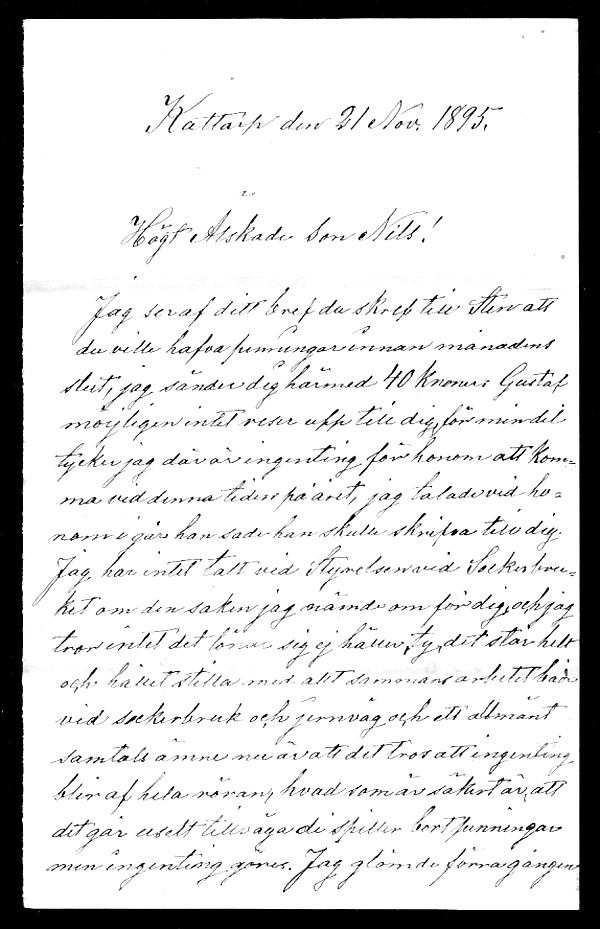 Kattarp den 21 Nov. 1895.
Högt Älskade Son Nils!
Jag ser af ditt bref du skref till Sten att
du ville hafva penningar innan månadens
slut, jag sänder dig härmed 40 Kronor. Gustaf
möjligen intet reser upp till dig, för min del
tycker jag där är ingenting för honom att kom=
ma vid denna tiden på året, jag talade vid ho=
nom i går han sade han skulle skrifva till dig.
Jag har intet talt vid Styrelsen vid Sockerbru=
ket om den saken jag nämde om för dig, och jag
tror intet det lönar sig ej häller, ty, det står helt
och hållet stilla med allt sammans arbetet både
vid sockerbruk och jernväg och ett allmänt
samtals ämne nu är att det tros att ingenting
blir af hela röran, hvad som är säkert är, att
det går uselt tillväga de spiller bort penningar
men ingenting göres. Jag glömde förra gången